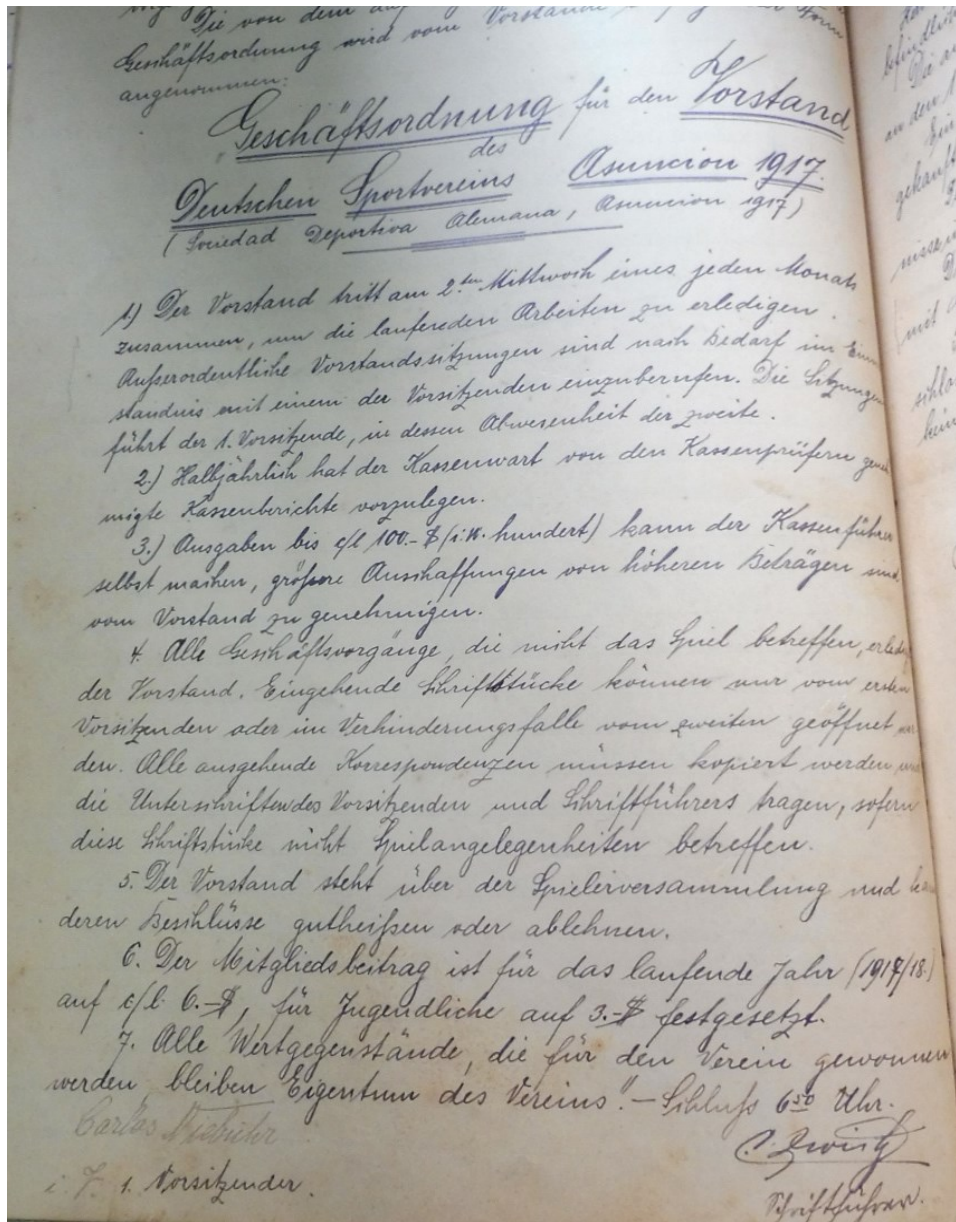 Die von dem
Geschäftsordnung wird vom Vorstande
angenommen:
Geschäftsordnung für den Vorstand
des
Deutschen Sportvereins Asuncion 1917.
(Sociedad Deportiva Alemana, Asuncion 1917)
1.) Der Vorstand tritt am 2ten Mittwoch eines jeden Monats
zusammen, um die laufenden Arbeiten zu erledigen.
Außerordentliche Vorstandssitzungen sind nach Bedarf im Einver
ständnis mit einem der Vorsitzenden einzuberufen. Die Sitzungen
führt der 1. Vorsitzende, in dessen Abwesenheit der zweite.
2.) Halbjährlich hat der Kassenwart von den Kassenprüfern geneh
migte Kassenberichte vorzulegen.
3.) Ausgaben bis c/l 100.- $ (i.W. hundert) kann der Kassenführer
selbst machen, größere Anschaffungen von höheren Beträgen sind
vom Vorstand zu genehmigen.
4. Alle Geschäftsvorgänge, die nicht das Spiel betreffen, erledigt
der Vorstand. Eingehende Schriftstücke können nur vom ersten
Vorsitzenden oder im Verhinderungsfalle vom zweiten geöffnet wer
den. Alle ausgehende Korrespondenzen müssen kopiert werden und
die Unterschriften des Vorsitzenden und Schriftführers tragen, sofern
diese Schriftstücke nicht Spielangelegenheiten betreffen.
5. Der Vorstand steht über der Spielerversammlung und kann
deren Beschlüsse gutheißen oder ablehnen.
6. Der Mitgliedsbeitrag ist für das laufende Jahr (1917/18.)
auf c/l. 6.-$, für Jugendliche auf 3.-$ festgesetzt.
7. Alle Wertgegenstände, die für den Verein gewonnen
werden bleiben Eigentum des Vereins". - Schluß 6 50 Uhr.
Carlos Niebuhr
i. V. 1. Vorsitzender.
Schriftführer.